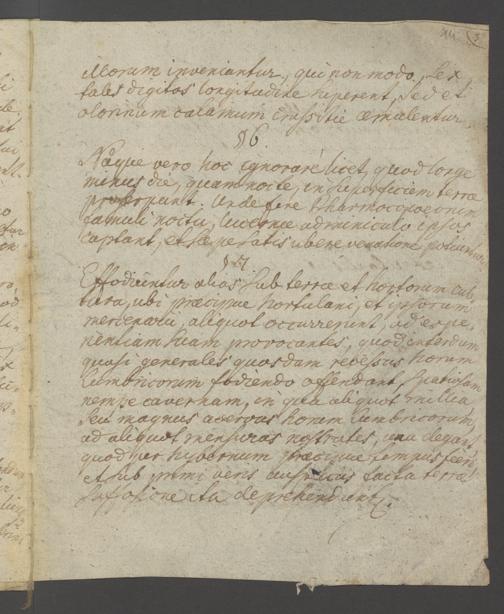 illorum inveniantur, qui non modo sex
tales digitos longitudine superent, sed et
olorinum calamum crassitie æmulentur.
§ 6.
Neque vero hoc ignorare licet, quod longe
minus die, quam nocte, in superficiem terræ
prorepunt. Unde fere Pharmacopoeorum
famuli noctu, lucernæ adminiculo ipsos
captant, et sæpe satis ubere venatione potiuntur.
§ 7.
Effodiuntur alias sub terra et hortorum cul
tura, ubi præcipue hortulani, et ipsorum
mercenarii, aliquot occurrerunt, ad expe
rientiam suam provocantes, quod interdum
quasi generales quosdam recessus horum
Lumbricorum fodiendo offendant, spatiosam
nempe cavernam, in qua aliquot millia
seu magnus acervus horum Lumbricorum,
ad aliquot mensuras nostrates, una degant
quod per hybernum præcipue tempus fieri,
et sub primi veris auspiciis facta terræ
suffosione ita deprehendunt.